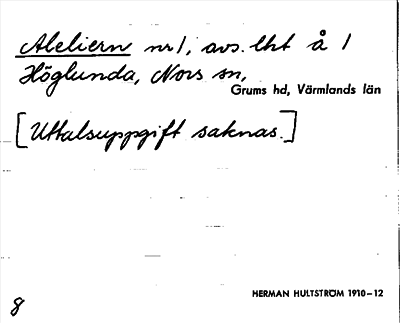 Ateliern nr 1, avs. lht å 1
Höglunda, Nors sn,
Grums hd, Värmlands län
[Uttalsuppgift saknas.]
HERMAN HULTSTRÖM 1910–12
8